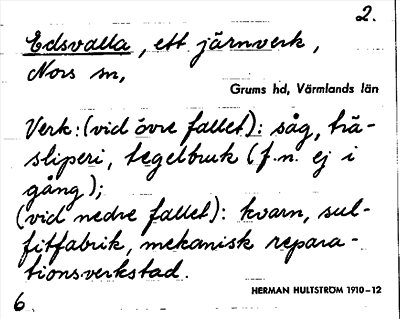 2.
Edsvalla, ett järnverk,
Nors sn,
Grums hd, Värmlands län
Verk: (vid övre fallet): såg, trä-
sliperi, tegelbruk (f.n. ej i
gång);
(vid nedre fallet): kvarn, sul-
fitfabrik, mekanisk repara-
tionsverkstad.
HERMAN HULTSTRÖM 1910-12
6.